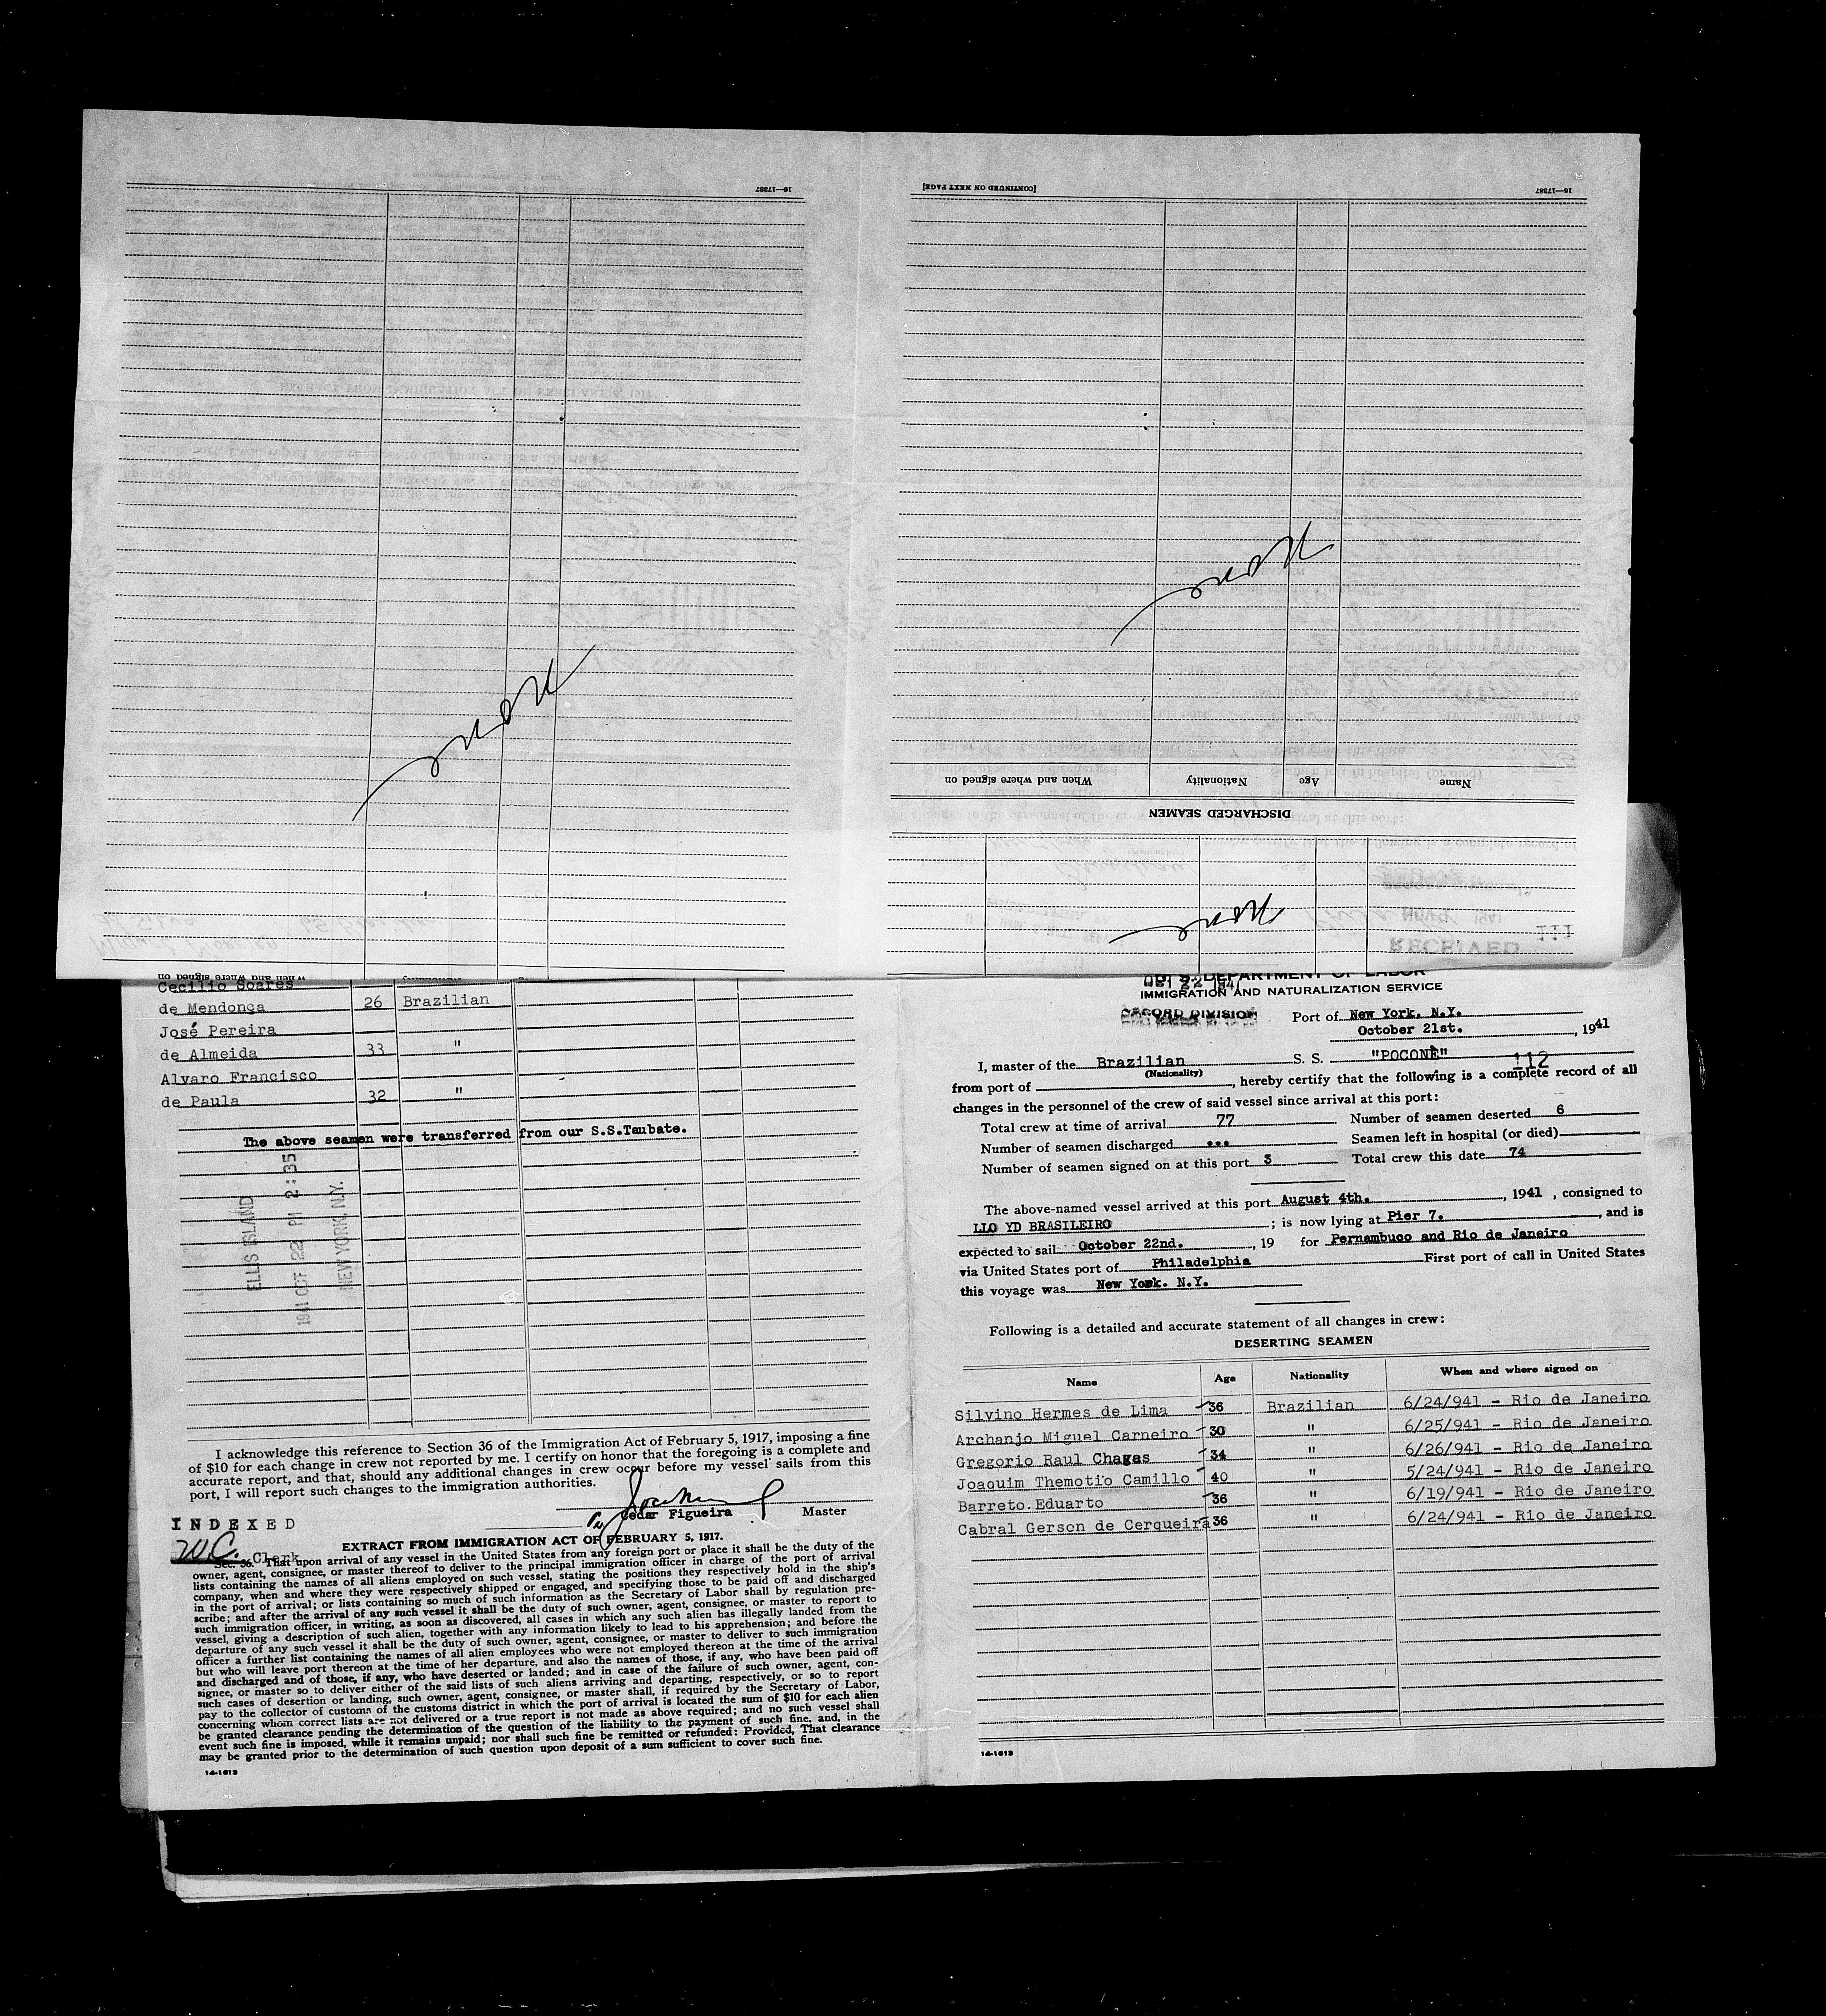 16—17387
[CONTINUED ON NEXT PAGE]
16—17387
None
None
When and where signed on
Nationality
Age
Name
DISCHARGED SEAMEN
None
RECEIVED
111
When and where signed on
Cecilio Soares
de Mendonça 26 Brazilian
José Pereira
de Almeida 33 "
Alvaro Francisco
de Paula 32 "
The above seamen were transferred from our S.S.Taubate.
ELLIS ISLAND
1941 OCT 22 PM 2:35
NEW YORK, N.Y.
I acknowledge this reference to Section 36 of the Immigration Act of February 5, 1917, imposing a fine
of $10 for each change in crew not reported by me. I certify on honor that the foregoing is a complete and
accurate report, and that, should any additional changes in crew occur before my vessel sails from this
port, I will report such changes to the immigration authorities.
Cedar Figueira Master
INDEXED
W.C. Clerk
EXTRACT FROM IMMIGRATION ACT OF FEBRUARY 5, 1917.
Sec. 36. That upon arrival of any vessel in the United States from any foreign port or place it shall be the duty of the
owner, agent, consignee, or master thereof to deliver to the principal immigration officer in charge of the port of arrival
lists containing the names of all aliens employed on such vessel, stating the positions they respectively hold in the ship's
company, when and where they were respectively shipped or engaged, and specifying those to be paid off and discharged
in the port of arrival; or lists containing so much of such information as the Secretary of Labor shall by regulation pre-
scribe; and after the arrival of any such vessel it shall be the duty of such owner, agent, consignee, or master to report to
such immigration officer, in writing, as soon as discovered, all cases in which any such alien has illegally landed from the
vessel, giving a description of such alien, together with any information likely to lead to his apprehension; and before the
departure of any such vessel it shall be the duty of such owner, agent, consignee, or master to deliver to such immigration
officer a further list containing the names of all alien employees who were not employed thereon at the time of the arrival
but who will leave port thereon at the time of her departure, and also the names of those, if any, who have been paid off
and discharged and of those, if any, who have deserted or landed; and in case of the failure of such owner, agent, con-
signee, or master so to deliver either of the said lists of such aliens arriving and departing, respectively, or so to report
such cases of desertion or landing, such owner, agent, consignee, or master shall, if required by the Secretary of Labor,
pay to the collector of customs of the customs district in which the port of arrival is located the sum of $10 for each alien
concerning whom correct lists are not delivered or a true report is not made as above required; and no such vessel shall
be granted clearance pending the determination of the question of the liability to the payment of such fine, and, in the
event such fine is imposed, while it remains unpaid; nor shall such fine be remitted or refunded: Provided, That clearance
may be granted prior to the determination of such question upon deposit of a sum sufficient to cover such fine.
14-1613
U. S. DEPARTMENT OF LABOR
IMMIGRATION AND NATURALIZATION SERVICE
RECORD DIVISION
Port of New York. N.Y.
October 21st. , 1941
I, master of the Brazilian S. S. "POCONÉ" 112
(Nationality)
from port of , hereby certify that the following is a complete record of all
changes in the personnel of the crew of said vessel since arrival at this port:
Total crew at time of arrival 77 Number of seamen deserted 6
Number of seamen discharged ... Seamen left in hospital (or died)
Number of seamen signed on at this port 3 Total crew this date 74
The above-named vessel arrived at this port August 4th. , 1941 , consigned to
LLO YD BRASILEIRO ; is now lying at Pier 7. , and is
expected to sail October 22nd. , 19 for Pernambuco and Rio de Janeiro
via United States port of Philadelphia First port of call in United States
this voyage was New York. N.Y.
Following is a detailed and accurate statement of all changes in crew:
DESERTING SEAMEN
Name Age Nationality When and where signed on
Silvino Hermes de Lima 36 Brazilian 6/24/941 - Rio de Janeiro
Archanjo Miguel Carneiro 30 " 6/25/941 - Rio de Janeiro
Gregorio Raul Chagas 34 " 6/26/941 - Rio de Janeiro
Joaquim Themotio Camillo 40 " 5/24/941 - Rio de Janeiro
Barreto.Eduarto 36 " 6/19/941 - Rio de Janeiro
Cabral Gerson de Cerqueira 36 " 6/24/941 - Rio de Janeiro
14-1613